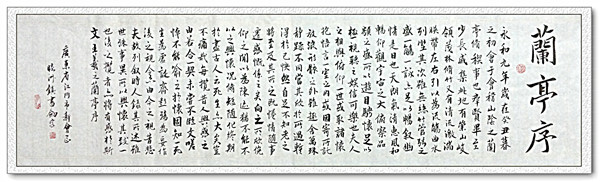 蘭亭序
永和九年歲在癸丑暮春
之初會于會稽山陰之蘭
亭脩禊事也羣賢畢至
少長咸集此地有崇山峻
領茂林脩竹又有清流激湍
暎帶左右引以為流觴曲水
列坐其次雖無絲竹管弦之
盛一觴一詠亦足以暢敘幽
情是日也天朗氣清惠風和
暢仰觀宇宙之大俯察品
類之盛所以遊目騁懷足以
極視聽之娛信可樂也夫人
之相與俯仰一世或取諸懷
抱悟言一室之內或因寄所託
放浪形骸之外雖趣舍萬殊
靜躁不同當其欣於所遇暫
得於己快然自足不知老之
將至及其所之既惓情隨事
遷感慨係之矣向之所欣俛
仰之間以為陳迹猶不能不
以之興懷況脩短隨化終期
於盡古人云死生亦大矣豈
不痛哉每攬昔人興感之
由若合一契未嘗不臨文嗟
悼不能喻之於懷固知一死
生為虛誕齊彭殤為妄作
後之視今亦由今之視昔悲
夫故列敘時人錄其所述雖
世殊事異所以興懷其致一
也後之攬者亦將有感於斯
文王羲之蘭亭序
廣東省江門市新會區